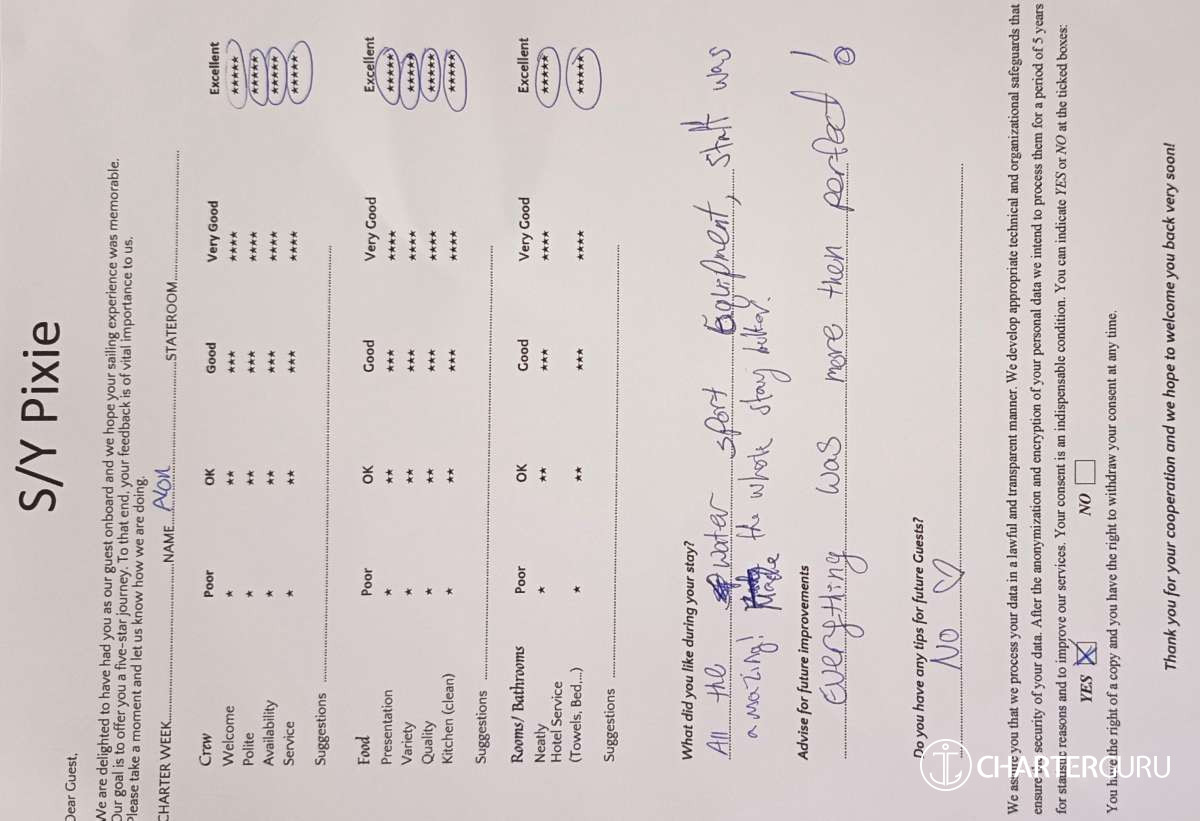 S/Y Pixie
Dear Guest,
We are delighted to have had you as our guest onboard and we hope your sailing experience was memorable.
Our goal is to offer you a five-star journey. To that end, your feedback is of vital importance to us.
Please take a moment and let us know how we are doing.
CHARTER WEEK..........NAME Alon ..........STATEROOM..........
Crew Poor OK Good Very Good Excellent
Welcome ★ ★★ ★★★ ★★★★ ★★★★★
Polite ★ ★★ ★★★ ★★★★ ★★★★★
Availability ★ ★★ ★★★ ★★★★ ★★★★★
Service ★ ★★ ★★★ ★★★★ ★★★★★
Suggestions ..........
Food Poor OK Good Very Good Excellent
Presentation ★ ★★ ★★★ ★★★★ ★★★★★
Variety ★ ★★ ★★★ ★★★★ ★★★★★
Quality ★ ★★ ★★★ ★★★★ ★★★★★
Kitchen (clean) ★ ★★ ★★★ ★★★★ ★★★★★
Suggestions ..........
Rooms/ Bathrooms Poor OK Good Very Good Excellent
Neatly ★ ★★ ★★★ ★★★★ ★★★★★
Hotel Service
(Towels, Bed...) ★ ★★ ★★★ ★★★★ ★★★★★
Suggestions ..........
What did you like during your stay?
All the water sport Equipment, staff was
amazing! Made the whole stay better.
Advise for future improvements
Everything was more then perfect!
Do you have any tips for future Guests?
NO ♡
We assure you that we process your data in a lawful and transparent manner. We develop appropriate technical and organizational safeguards that
ensure the security of your data. After the anonymization and encryption of your personal data we intend to process them for a period of 5 years
for statistic reasons and to improve our services. Your consent is an indispensable condition. You can indicate YES or NO at the ticked boxes:
YES ☒ NO ☐
You have the right of a copy and you have the right to withdraw your consent at any time.
Thank you for your cooperation and we hope to welcome you back very soon!
CHARTERGURU